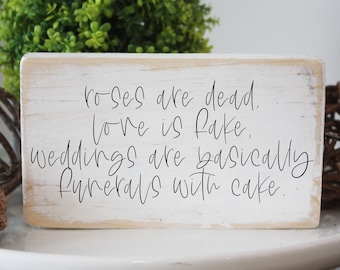 roses are dead,
love is fake,
weddings are basically
funerals with cake.